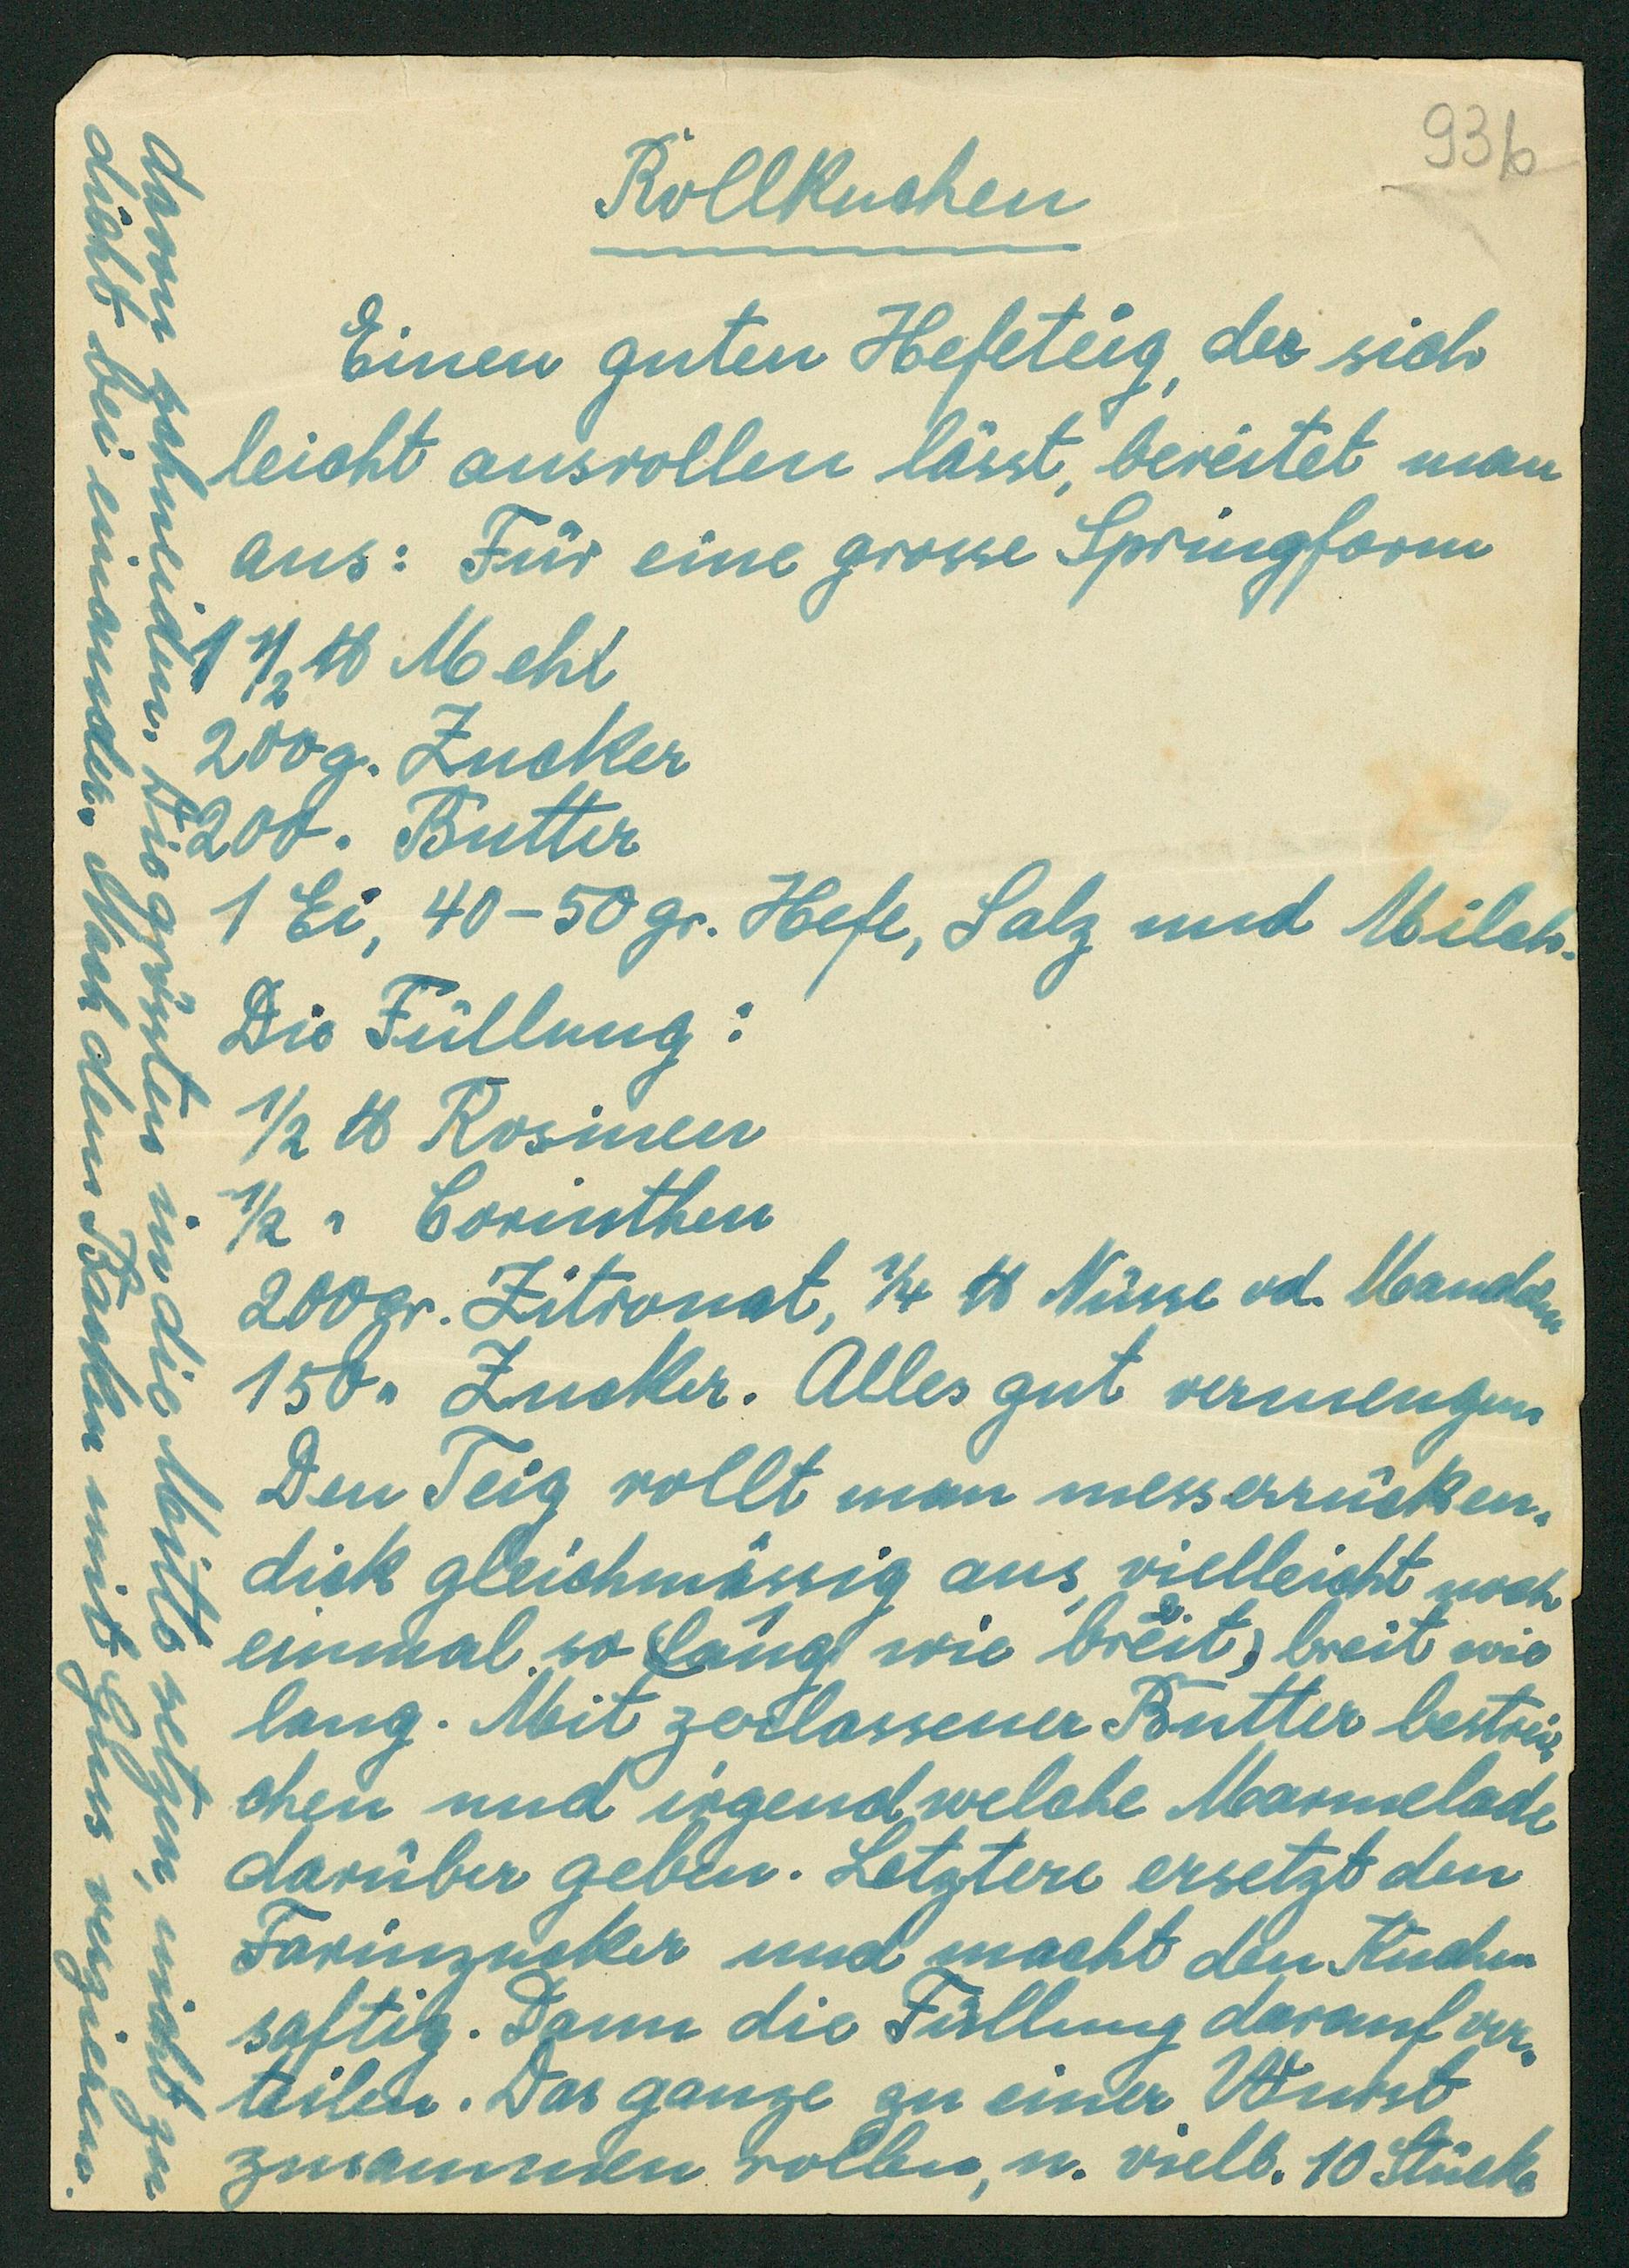 93b
Rollkuchen
Einen guten Hefeteig, der sich
leicht ausrollen lässt, bereitet man
aus: Für eine grosse Springform
1 1/2 ℔ Mehl
200g. Zucker
200. Butter
1 Ei, 40-50 gr. Hefe, Salz und Milch.
Die Füllung:
1/2 ℔ Rosinen
1/2 " Corinthen
200gr. Zitronat, 1/4 ℔ Nüsse od. Mandeln
150 " Zucker. Alles gut vermengen
Den Teig rollt man messerrücken-
dick gleichmässig aus, vielleicht noch
einmal so (lang wie breit) breit wie
lang. Mit zerlassener Butter bestrei-
chen und irgendwelche Marmelade
darüber geben. Letztere ersetzt den
Farinzucker und macht den Kuchen
saftig. Dann die Füllung darauf ver-
teilen. Das ganze zu einer Wurst
zusammen rollen, u. viell. 10 Stücke
davon schneiden. Die grössten in die Mitte setzen, nicht zu
dicht bei einander. Nach dem Backen mit Guss verzieren.